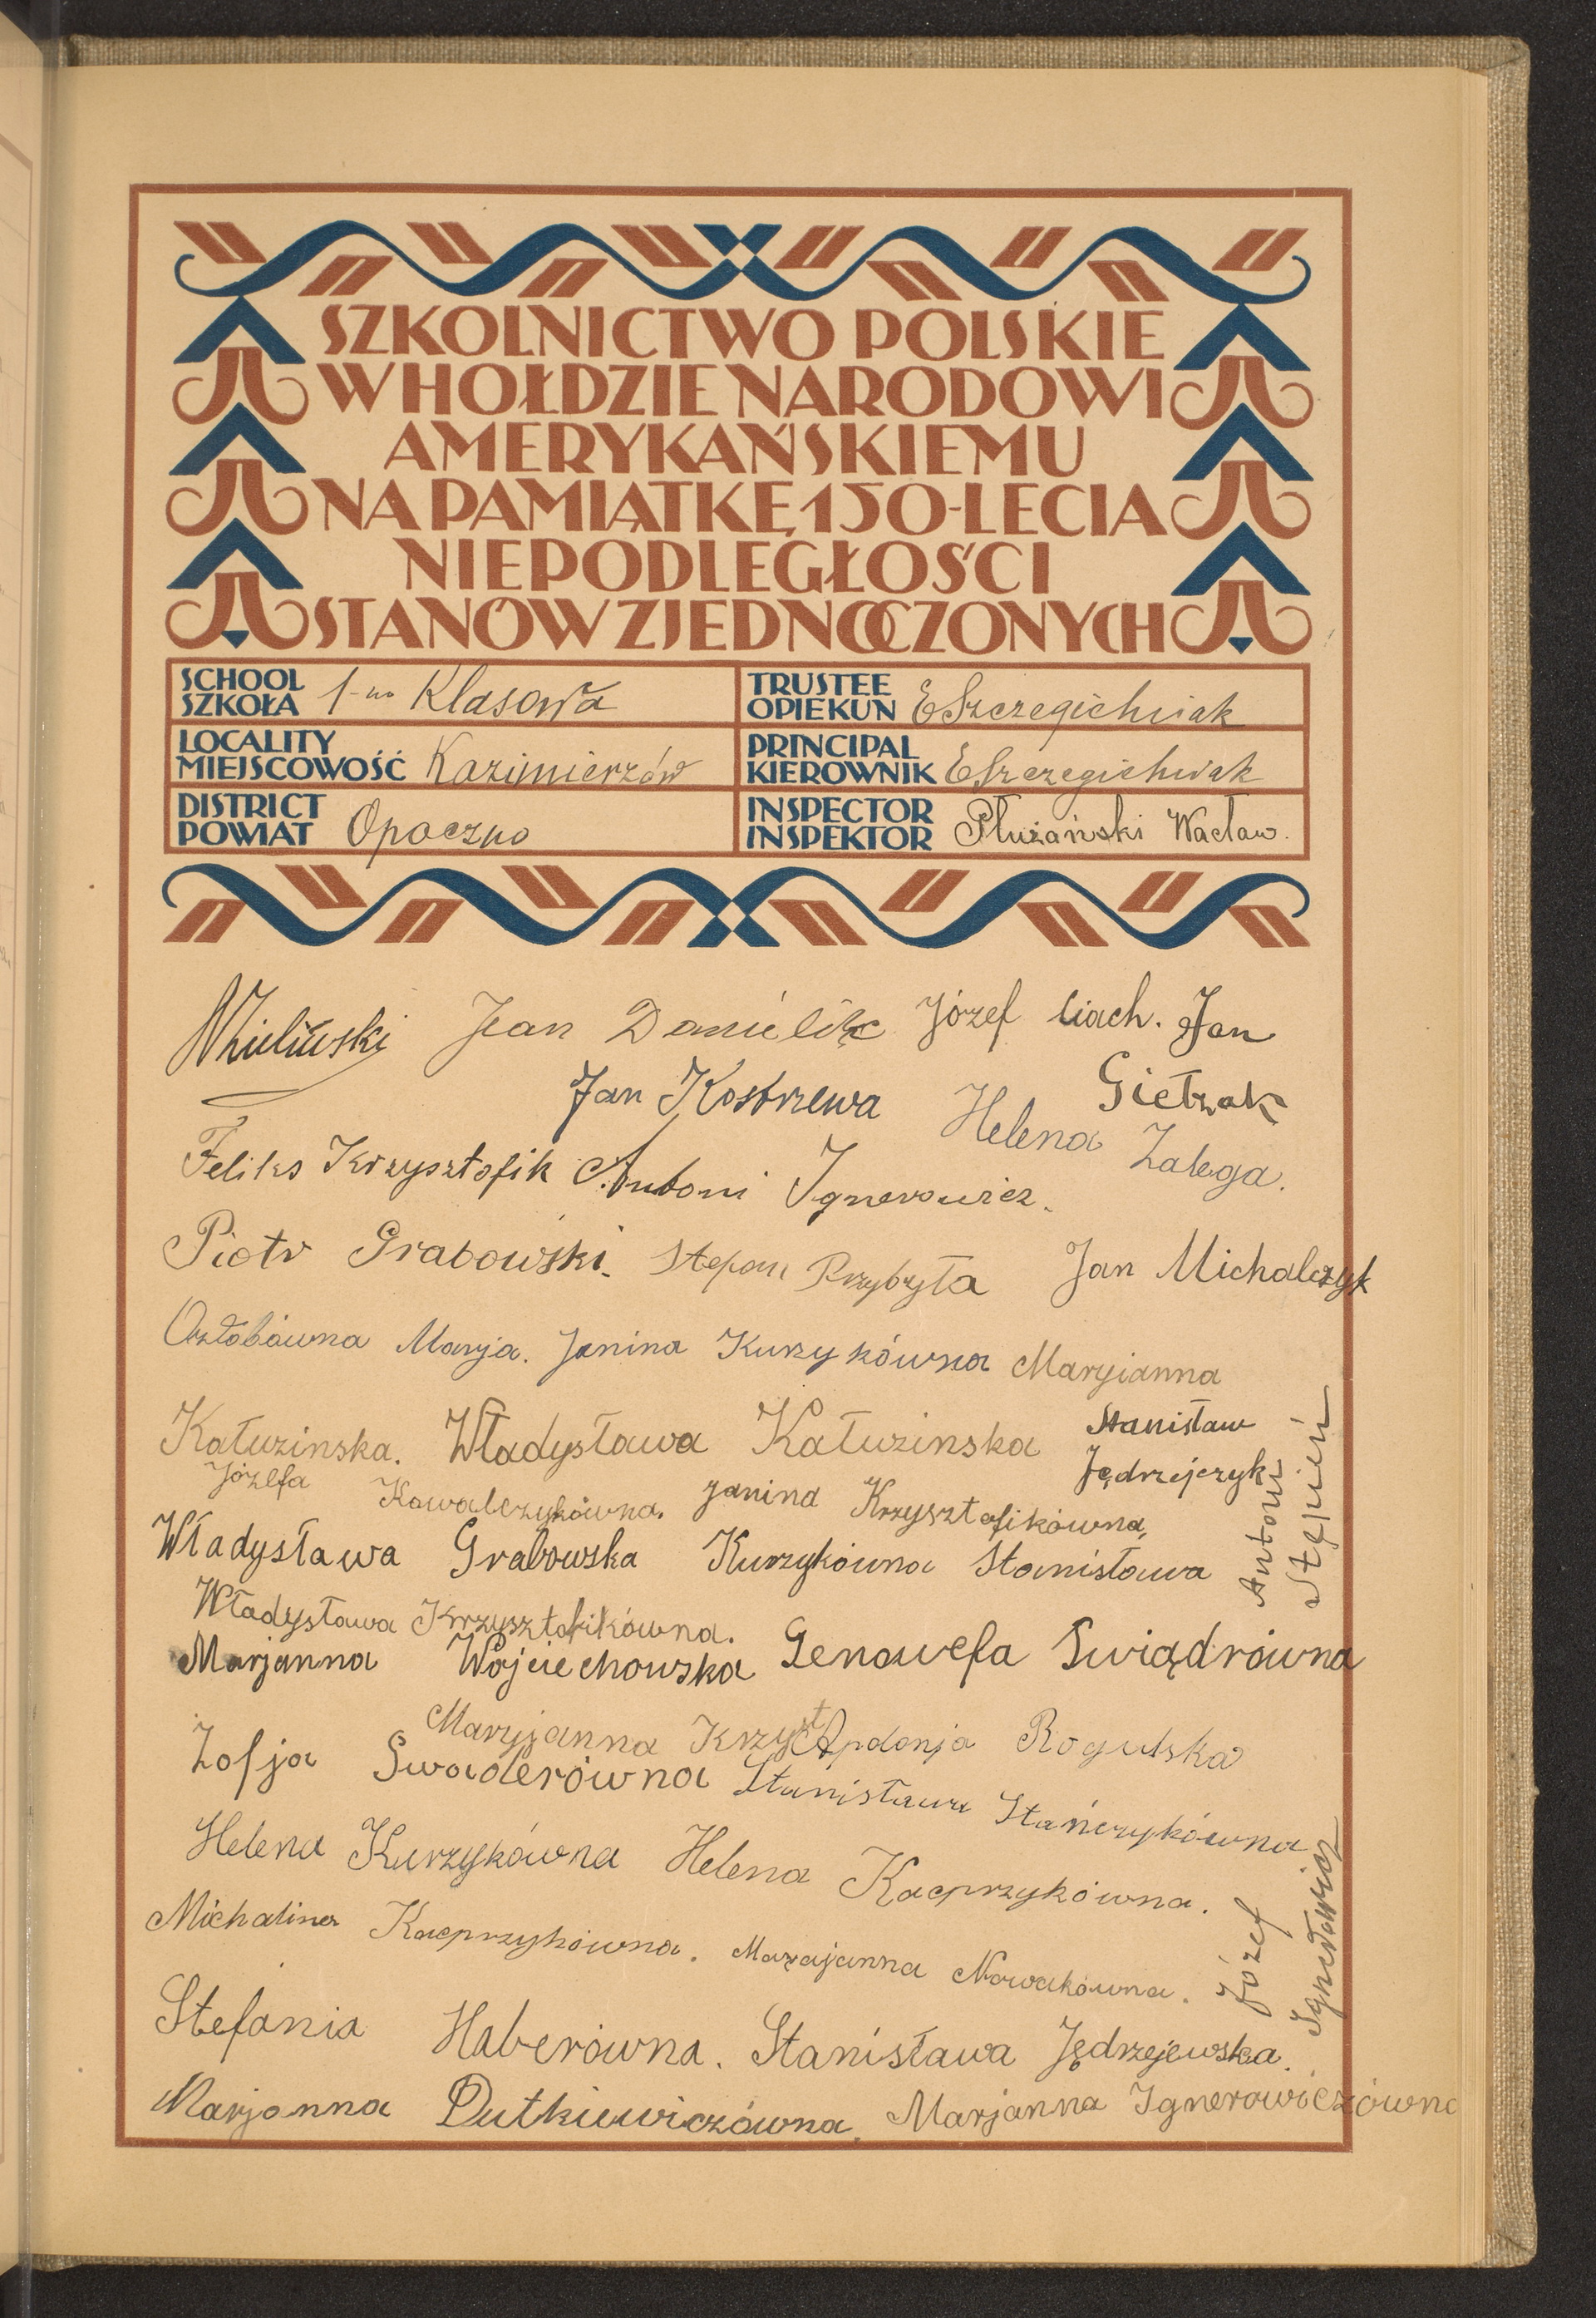 SZKOLNICTWO POLSKIE
W HOŁDZIE NARODOWI
AMERYKAŃSKIEMU
NA PAMIĄTKĘ 150-LECIA
NIEPODLEGŁOŚCI
STANÓW ZJEDNOCZONYCH
SCHOOL SZKOŁA 1-no Klasowa
TRUSTEE OPIEKUN
LOCALITY MIEJSCOWOŚĆ Kazimierzów
PRINCIPAL KIEROWNIK
DISTRICT POWIAT Opoczno
INSPECTOR INSPEKTOR Płużański Wacław.
Jean Józef Ciach. Jan
Jan Kostrzewa Helena Gietrak
Zalega.
Feliks Krzysztofik Antoni Ignerowicz.
Piotr Grabowski. Stefan Przybyła Jan Michalczyk
Marja. Janina Kurzykówna Maryianna
Kałuzinska. Władysława Kałuzinska Stanisław
Jędrzejczyk
Józefa Kowalczykówna. Janina Krzysztofikówna,
Antoni Stępień
Władysława Grabowska Kurzykówna Stanisława
Władysława Krzysztofikówna.
Marjanna Wojciechowska Genowefa Swiądrówna
Maryjanna Krzyszt Apolonja Rogulska
Zofja Swaderówna Stanisława Stańczykówna
Helena Kurzykówna Helena Kacprzykówna.
Michalina Kacprzykówna. Nowakówna.
Józef
Stefania Haberówna. Stanisława Jędrzejewska.
Marjanna Dutkiewiczówna. Marjanna Ignerowiczówna